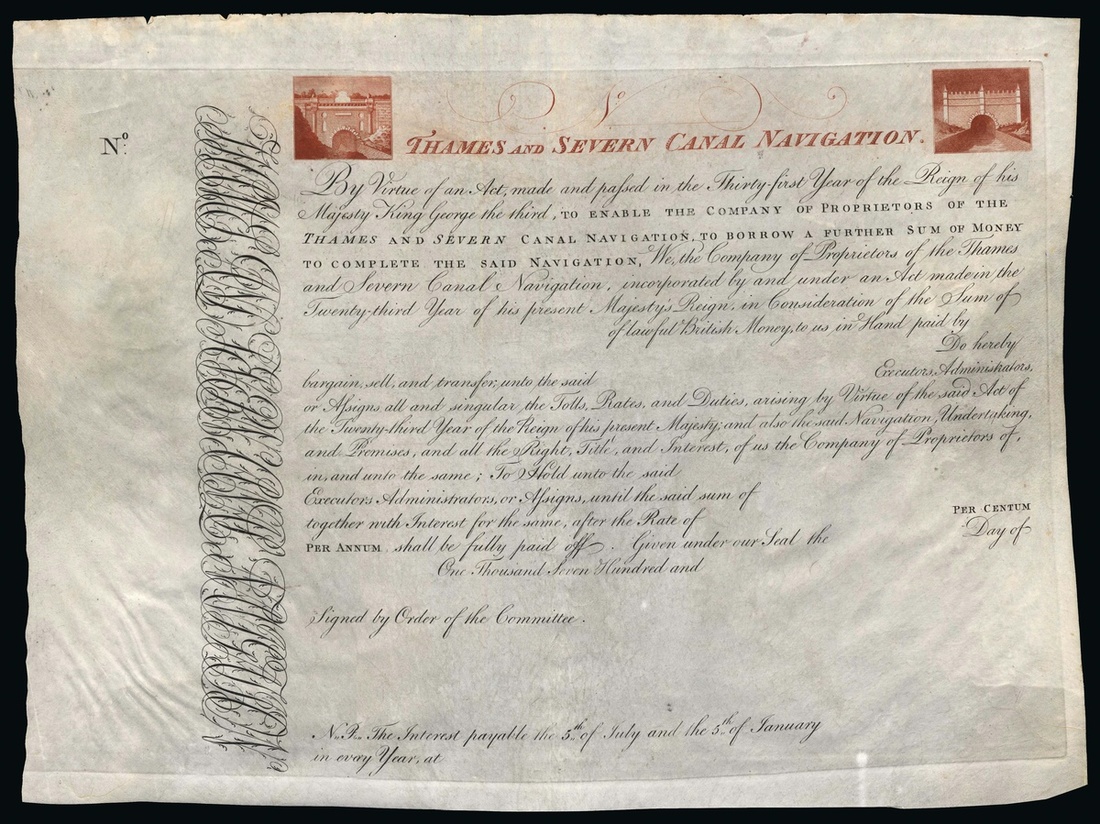 Nº.
Nº
THAMES AND SEVERN CANAL NAVIGATION.
By Virtue of an Act, made and passed in the Thirty-first Year of the Reign of his
Majesty King George the third, TO ENABLE THE COMPANY OF PROPRIETORS OF THE
THAMES AND SEVERN CANAL NAVIGATION, TO BORROW A FURTHER SUM OF MONEY
TO COMPLETE THE SAID NAVIGATION, We, the Company of Proprietors of the Thames
and Severn Canal Navigation, incorporated by and under an Act made in the
Twenty-third Year of his present Majesty's Reign, in Consideration of the Sum of
of lawful British Money, to us in Hand paid by
Do hereby
bargain, sell, and transfer, unto the said
Executors, Administrators,
or Aſsigns, all and singular, the Tolls, Rates, and Duties, arising by Virtue of the said Act of
the Twenty-third Year of the Reign of his present Majesty; and also the said Navigation, Undertaking,
and Premises, and all the Right, Title, and Interest, of us the Company of Proprietors of,
in, and unto the same; To Hold unto the said
Executors Administrators, or Aſsigns, until the said sum of
together with Interest for the same, after the Rate of PER CENTUM
PER ANNUM, shall be fully paid off. Given under our Seal the Day of
One Thousand Seven Hundred and
Signed by Order of the Committee.
N.B. The Interest payable the 5th of July and the 5th of January
in every Year, at